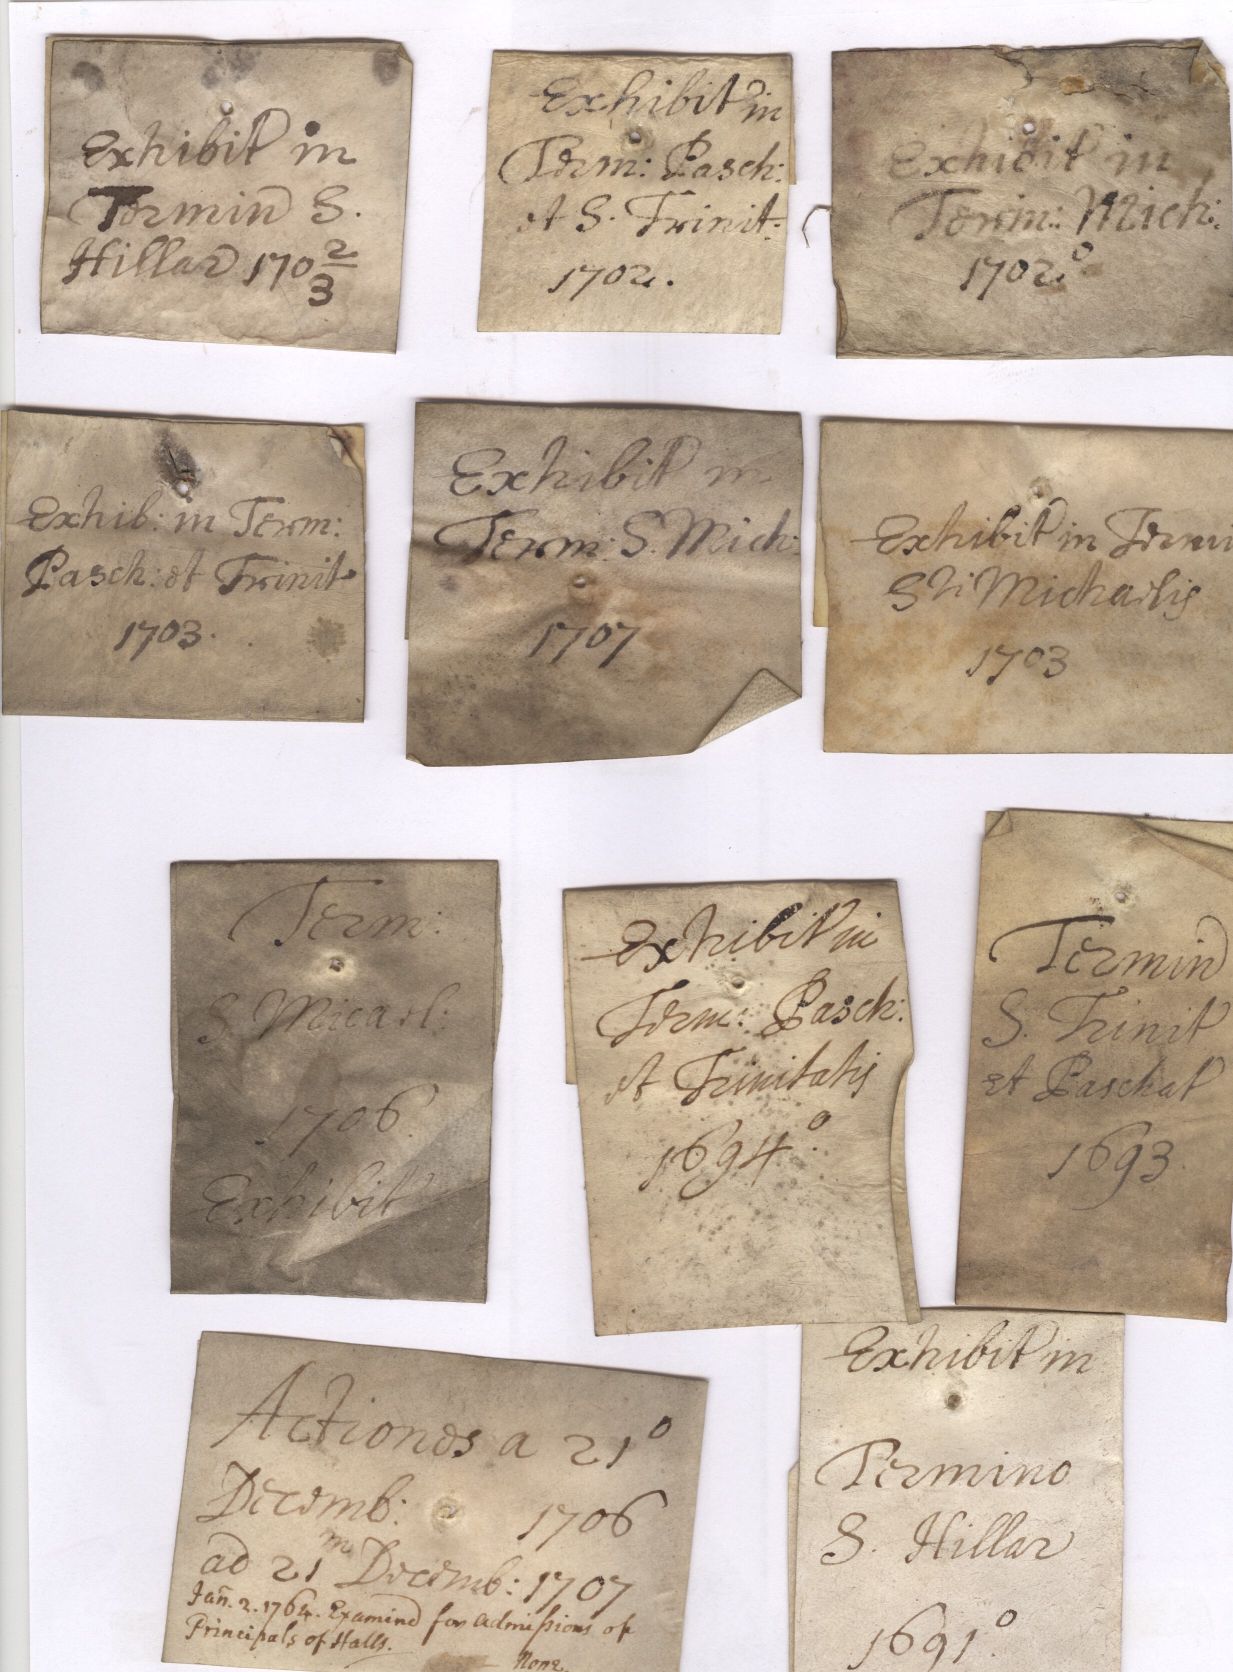 Exhibit in
Termin S.
Hillar 170 2/3
Exhibit in
Term: Pasch:
et S. Trinit:
1702.
Exhibit in
Term: Mich:
1702.º
Exhib: in Term:
Pasch: et Trinit
1703.
Exhibit in
Term: S. Mich:
1707
Exhibit in Termi
Sti Michaelis
1703
Term:
S. Micael:
1706.
Exhibit
Exhibit in
Term: Pasch:
et Trinitatis
1694.º
Termin
S. Trinit
et Paschat
1693.
Actiones a 21º
Decemb: 1706
ad 21m Decemb: 1707
Jan. 2. 1764. Examind for admissions of
Principals of Halls.
None.
Exhibit in
Termino
S. Hillar
1691º